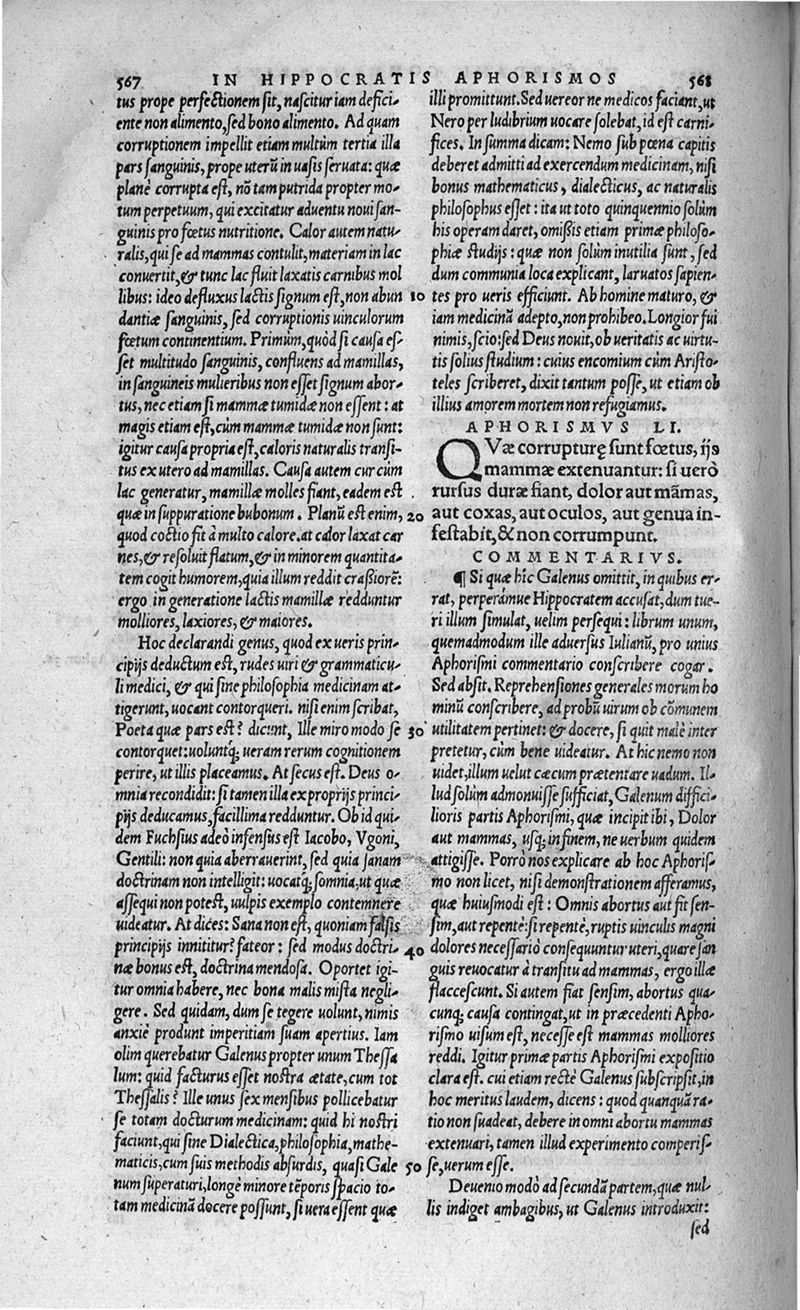 567 IN HIPPOCRATIS APHORISMOS 568
tus prope perfectionem sit, nascitur iam defici-
ente non alimento, sed bono alimento. Ad quam
corruptionem impellit etiam multùm tertia illa
pars sanguinis, prope uterũ in uasis seruata: quæ
planè corrupta est, nō tam putrida propter mo-
tum perpetuum, qui excitatur aduentu noui san-
guinis pro fœtus nutritione. Calor autem natu-
ralis, qui se ad mammas contulit, materiam in lac
conuertit, & tunc lac fluit laxatis carnibus mol
libus: ideo defluxus lactis signum est, non abun
dantiæ sanguinis, sed corruptionis uinculorum
fœtum continentium. Primùm, quòd si causa es-
set multitudo sanguinis, confluens ad mamillas,
in sanguineis mulieribus non esset signum abor-
tus, nec etiam si mammæ tumidæ non essent: at
magis etiam est, cùm mammæ tumidæ non sunt:
igitur causa propria est, caloris naturalis transi-
tus ex utero ad mamillas. Causa autem cur cùm
lac generatur, mamillæ molles fiant, eadem est
quæ in suppuratione bubonum. Planũ est enim,
quod coctio fit à multo calore. at calor laxat car
nes, & resoluit flatum, & in minorem quantita-
tem cogit humorem, quia illum reddit crassiorē:
ergo in generatione lactis mamillæ redduntur
molliores, laxiores, & maiores.
Hoc declarandi genus, quod ex ueris prin-
cipijs deductum est, rudes uiri & grammaticu-
li medici, & qui sine philosophia medicinam at-
tigerunt, uocant contorqueri. nisi enim scribat,
Poeta quæ pars est? dicunt, Ille miro modo se
contorquet: uoluntq; ueram rerum cognitionem
perire, ut illis placeamus. At secus est. Deus o-
mnia recondidit: si tamen illa ex proprijs princi-
pijs deducamus, facillima redduntur. Ob id qui-
dem Fuchsius adeò infensus est Iacobo, Vgoni,
Gentili: non quia aberrauerint, sed quia sanam
doctrinam non intelligit: uocatq; somnia, ut quæ
assequi non potest, uulpis exemplo contemnere
uideatur. At dices: Sana non est, quoniam falsis
principijs innititur? fateor: sed modus doctri-
næ bonus est, doctrina mendosa. Oportet igi-
tur omnia habere, nec bona malis mista negli-
gere. Sed quidam, dum se tegere uolunt, nimis
anxiè produnt imperitiam suam apertius. Iam
olim querebatur Galenus propter unum Thessa
lum: quid facturus esset nostra ætate, cum tot
Thessalis? Ille unus sex mensibus pollicebatur
se totam docturum medicinam: quid hi nostri
faciunt, qui sine Dialectica, philosophia, mathe-
maticis, cum suis methodis absurdis, quasi Gale
num superaturi, longè minore tēporis spacio to-
tam medicinā docere possunt, si uera essent quæ
illi promittunt. Sed uereor ne medicos faciant, ut
Nero per ludibrium uocare solebat, id est carni-
fices. In summa dicam: Nemo sub pœna capitis
deberet admitti ad exercendum medicinam, nisi
bonus mathematicus, dialecticus, ac naturalis
philosophus esset: ita ut toto quinquennio solùm
his operam daret, omißis etiam primæ philoso-
phiæ studijs: quæ non solùm inutilia sunt, sed
dum communia loca explicant, laruatos sapien-
10 tes pro ueris efficiunt. Ab homine maturo, &
iam medicinā adepto, non prohibeo. Longior fui
nimis, scio: sed Deus nouit, ob ueritatis ac uirtu-
tis solius studium: cuius encomium cùm Aristo-
teles scriberet, dixit tantum posse, ut etiam ob
illius amorem mortem non refugiamus.
APHORISMVS LI.
QVæ corrupturę sunt fœtus, ijs
mammæ extenuantur: si uerò
rursus duræ fiant, dolor aut māmas,
20 aut coxas, aut oculos, aut genua in-
festabit, & non corrumpunt.
COMMENTARIVS.
¶ Si quæ hîc Galenus omittit, in quibus er-
rat, perperámue Hippocratem accusat, dum tue-
ri illum simulat, uelim persequi: librum unum,
quemadmodum ille aduersus Iulianũ, pro unius
Aphorismi commentario conscribere cogar.
Sed absit. Reprehensiones generales morum ho
minũ conscribere, ad probũ uirum ob cōmunem
30 utilitatem pertinet: & docere, si quit malè inter
pretetur, cùm bene uideatur. At hic nemo non
uidet, illum uelut cæcum prætentare uadum. Il-
lud solùm admonuisse sufficiat, Galenum diffici-
lioris partis Aphorismi, quæ incipit ibi, Dolor
aut mammas, usq; in finem, ne uerbum quidem
attigisse. Porrò nos explicare ab hoc Aphoris-
mo non licet, nisi demonstrationem afferamus,
quæ huiusmodi est: Omnis abortus aut fit sen-
sim, aut repentè: si repentè, ruptis uinculis magni
40 dolores necessariò consequuntur uteri, quare san
guis reuocatur à transitu ad mammas, ergo illæ
flaccescunt. Si autem fiat sensim, abortus qua-
cunq; causa contingat, ut in præcedenti Apho-
rismo uisum est, necesse est mammas molliores
reddi. Igitur primæ partis Aphorismi expositio
clara est. cui etiam rectè Galenus subscripsit, in
hoc meritus laudem, dicens: quod quanquā ra-
tio non suadeat, debere in omni abortu mammas
extenuari, tamen illud experimento comperis-
50 se, uerum esse.
Deuenio modò ad secundā partem, quæ nul-
lis indiget ambagibus, ut Galenus introduxit:
sed